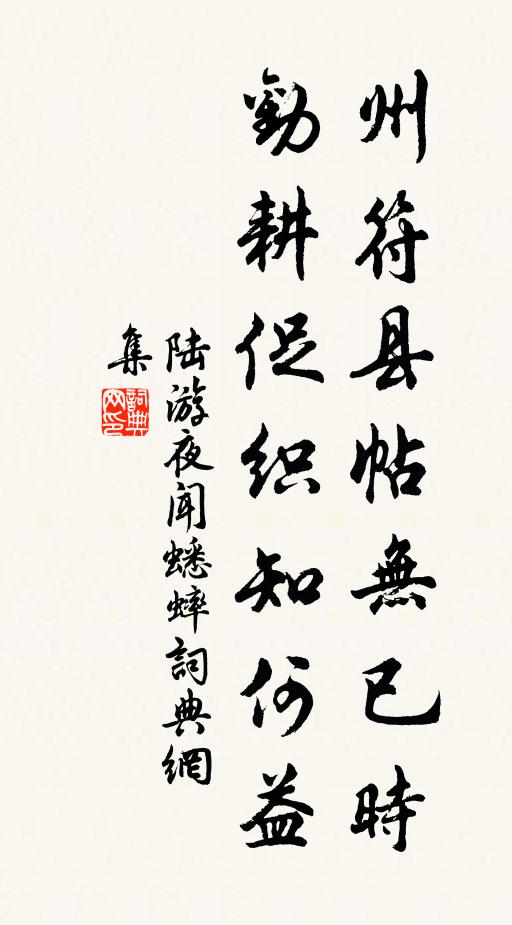 州符县帖無已時
勸耕促织知何益
陆游夜闻蟋蟀詞典網
集
詞典
网印